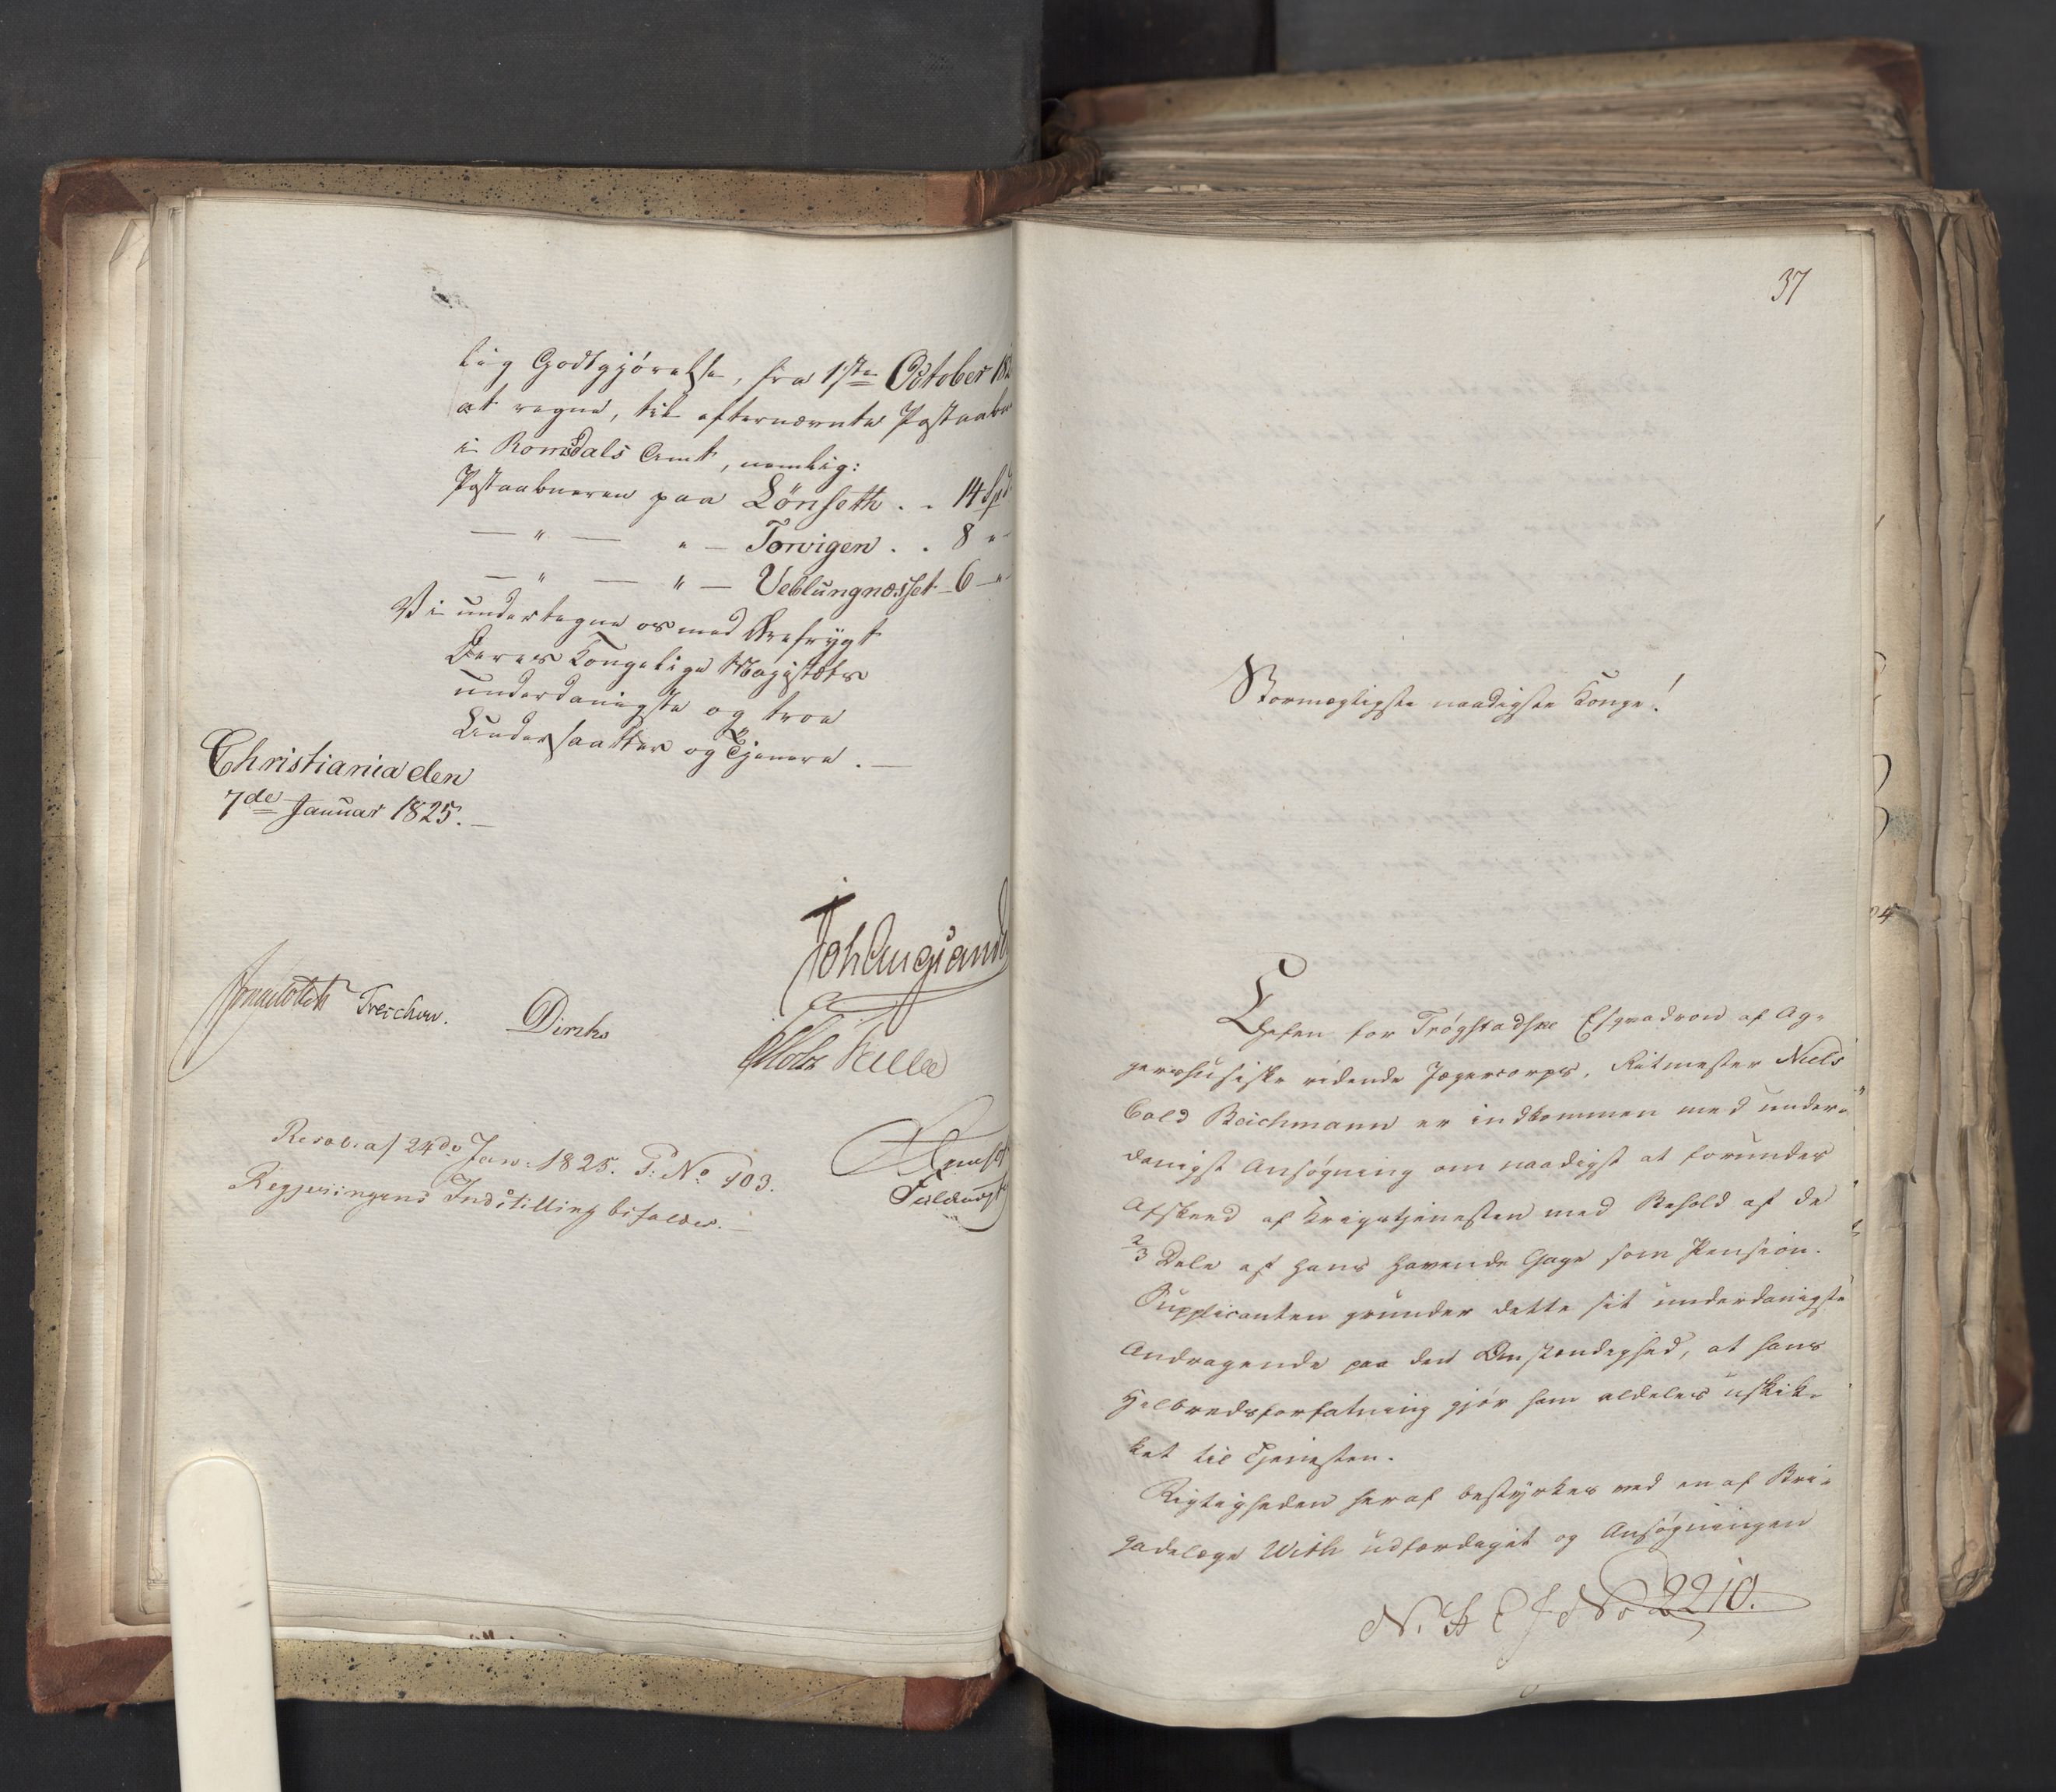 lig Godtgjørelse, fra 1ste October 182
at regne, til efternævnte Postaabn
i Romsdals Amt, nemlig:
Postaabneren paa Lönseth . . 14 Spd
— " — " — Torvigen . . 8 "
— " — " — Veblungnæsset – 6 — "
Vi undertegne os med Ærefrygt
Deres Kongelige Majestæts
underdanigste og troe
Undersaatter og Tjenere. —
Christiania den
7de Januar 1825. —
Joh Aug Sand
Treschow. Diriks
Motz
Resol. af 24de Jan: 1825. P: No 103.
Regjeringens Indstilling bifaldes.
37
Stormægtigste naadigste Konge!
Chefen for Trøgstadske Esqvadron af Ag-
gershusiske ridende Jægercorps, Ritmester Niels
Cold Beichmann er indkommen med under-
danigst Ansøgning om naadigst at forundes
Afskeed af Krigstjenesten med Behold af de
2/3 Dele af hans havende Gage som Pension.
Supplicanten grunder dette sit underdanigste
Andragende paa den Omstændighed, at hans
Helbredsforfatning gjør ham aldeles uskik-
ket til Tjenesten.
Rigtigheden heraf bestyrkes ved en af Bri-
gadelæge With udfærdiget og Ansøgningen
No 2210.